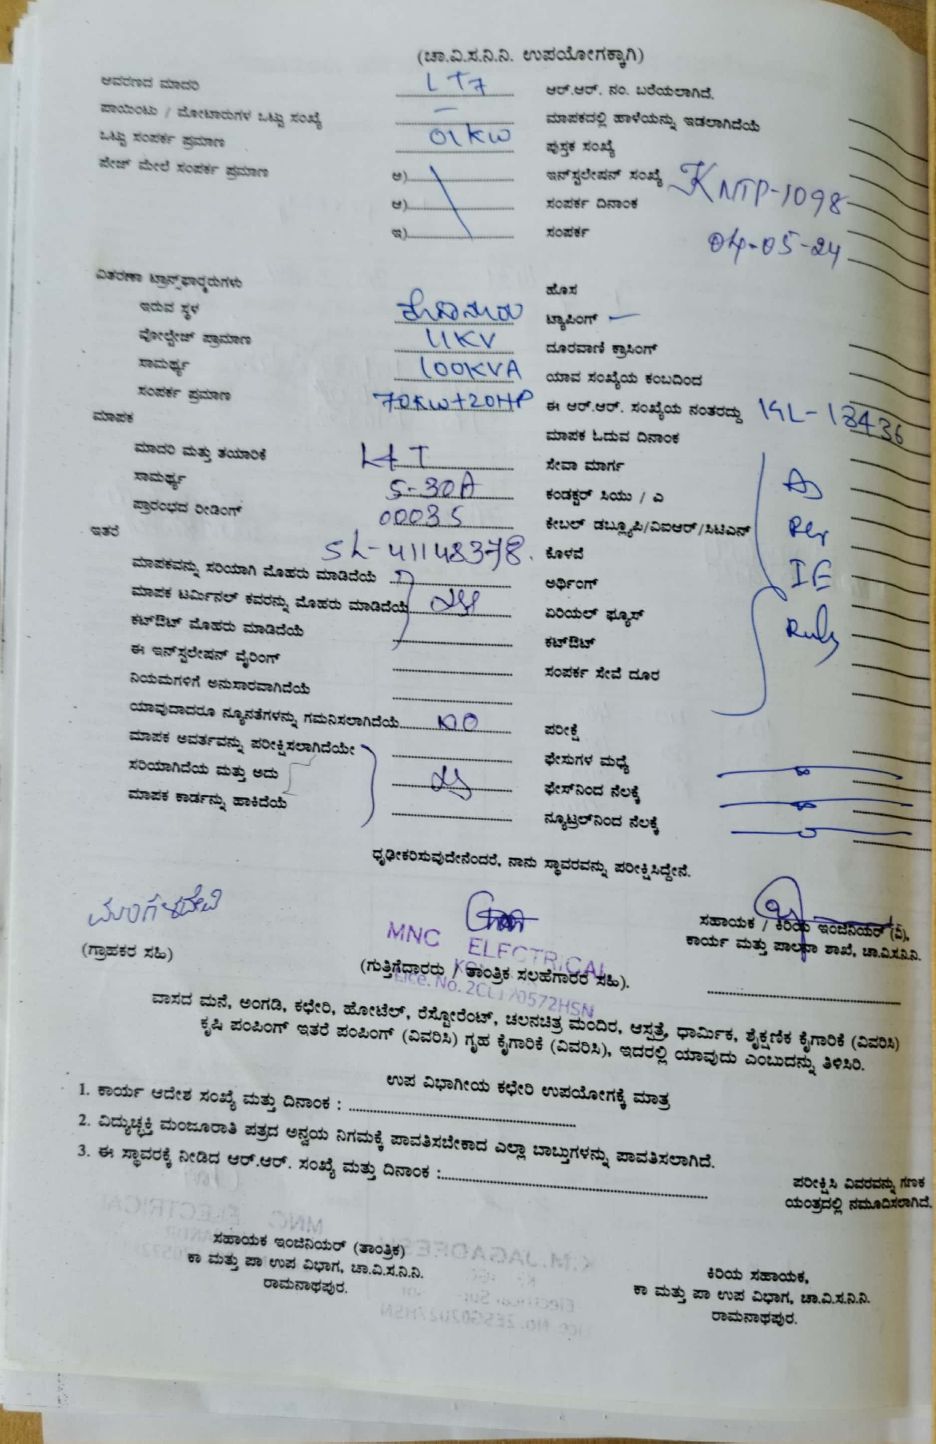 (ಚಾ.ವಿ.ಸ.ನಿ.ನಿ. ಉಪಯೋಗಕ್ಕಾಗಿ)
ಆವರಣದ ಮಾದರಿ LT7 ಆರ್.ಆರ್. ನಂ. ಬರೆಯಲಾಗಿದೆ.
ಪಾಯಿಂಟು / ಮೋಟಾರುಗಳ ಒಟ್ಟು ಸಂಖ್ಯೆ — ಮಾಪಕದಲ್ಲಿ ಹಾಳೆಯನ್ನು ಇಡಲಾಗಿದೆಯೆ
ಒಟ್ಟು ಸಂಪರ್ಕ ಪ್ರಮಾಣ 01KW ಪುಸ್ತಕ ಸಂಖ್ಯೆ
ಪೇಜ್ ಮೇಲೆ ಸಂಪರ್ಕ ಪ್ರಮಾಣ ಅ) ಇನ್‌ಸ್ಟಲೇಷನ್ ಸಂಖ್ಯೆ KNTP-1098
ಆ) ಸಂಪರ್ಕ ದಿನಾಂಕ 04-05-24
ಇ) ಸಂಪರ್ಕ
ವಿತರಣಾ ಟ್ರಾನ್ಸ್‌ಫಾರ್‍ಮರುಗಳು ಹೊಸ
ಇರುವ ಸ್ಥಳ ಟ್ಯಾಪಿಂಗ್ —
ವೋಲ್ಟೇಜ್ ಪ್ರಾಮಾಣ 11KV ದೂರವಾಣಿ ಕ್ರಾಸಿಂಗ್
ಸಾಮರ್ಥ್ಯ 100KVA ಯಾವ ಸಂಖ್ಯೆಯ ಕಂಬದಿಂದ
ಸಂಪರ್ಕ ಪ್ರಮಾಣ 70KW+20HP ಈ ಆರ್.ಆರ್. ಸಂಖ್ಯೆಯ ನಂತರದ್ದು KL-13436
ಮಾಪಕ ಮಾಪಕ ಓದುವ ದಿನಾಂಕ
ಮಾದರಿ ಮತ್ತು ತಯಾರಿಕೆ L&T ಸೇವಾ ಮಾರ್ಗ As
ಸಾಮರ್ಥ್ಯ 5-30A ಕಂಡಕ್ಟರ್ ಸಿಯು / ಎ
ಪ್ರಾರಂಭದ ರೀಡಿಂಗ್ 00035 ಕೇಬಲ್ ಡಬ್ಲ್ಯೂಪಿ/ವಿಐಆರ್/ಸಿಟಿಎನ್ Per
ಇತರೆ SL-41148378. ಕೊಳವೆ
ಮಾಪಕವನ್ನು ಸರಿಯಾಗಿ ಮೊಹರು ಮಾಡಿದೆಯೆ ಅರ್ಥಿಂಗ್ IE
ಮಾಪಕ ಟರ್ಮಿನಲ್ ಕವರನ್ನು ಮೊಹರು ಮಾಡಿದೆಯೆ ಏರಿಯಲ್ ಫ್ಯೂಸ್ Rules
ಕಟ್‌ಔಟ್ ಮೊಹರು ಮಾಡಿದೆಯೆ ಕಟ್‌ಔಟ್
ಈ ಇನ್‌ಸ್ಟಲೇಷನ್ ವೈರಿಂಗ್ ಸಂಪರ್ಕ ಸೇವೆ ದೂರ
ನಿಯಮಗಳಿಗೆ ಅನುಸಾರವಾಗಿದೆಯೆ
ಯಾವುದಾದರೂ ನ್ಯೂನತೆಗಳನ್ನು ಗಮನಿಸಲಾಗಿದೆಯೆ NO ಪರೀಕ್ಷೆ
ಮಾಪಕ ಅವರ್ತವನ್ನು ಪರೀಕ್ಷಿಸಲಾಗಿದೆಯೇ ಫೇಸುಗಳ ಮಧ್ಯೆ
ಸರಿಯಾಗಿದೆಯ ಮತ್ತು ಅದು ಫೇಸ್‌ನಿಂದ ನೆಲಕ್ಕೆ
ಮಾಪಕ ಕಾರ್ಡನ್ನು ಹಾಕಿದೆಯೆ ನ್ಯೂಟ್ರಲ್‌ನಿಂದ ನೆಲಕ್ಕೆ
ಧೃಢೀಕರಿಸುವುದೇನೆಂದರೆ, ನಾನು ಸ್ಥಾವರವನ್ನು ಪರೀಕ್ಷಿಸಿದ್ದೇನೆ.
ಮಂಗಳದೇವಿ
MNC ELECTRICAL
ಸಹಾಯಕ / ಕಿರಿಯ ಇಂಜಿನಿಯರ್ (ವಿ),
ಕಾರ್ಯ ಮತ್ತು ಪಾಲನಾ ಶಾಖೆ, ಚಾ.ವಿ.ಸ.ನಿ.ನಿ.
(ಗ್ರಾಹಕರ ಸಹಿ) (ಗುತ್ತಿಗೆದಾರರು / ತಾಂತ್ರಿಕ ಸಲಹೆಗಾರರ ಸಹಿ).
ವಾಸದ ಮನೆ, ಅಂಗಡಿ, ಕಛೇರಿ, ಹೋಟೆಲ್, ರೆಸ್ಟೋರೆಂಟ್, ಚಲನಚಿತ್ರ ಮಂದಿರ, ಆಸ್ಪತ್ರೆ, ಧಾರ್ಮಿಕ, ಶೈಕ್ಷಣಿಕ ಕೈಗಾರಿಕೆ (ವಿವರಿಸಿ)
ಕೃಷಿ ಪಂಪಿಂಗ್ ಇತರೆ ಪಂಪಿಂಗ್ (ವಿವರಿಸಿ) ಗೃಹ ಕೈಗಾರಿಕೆ (ವಿವರಿಸಿ), ಇದರಲ್ಲಿ ಯಾವುದು ಎಂಬುದನ್ನು ತಿಳಿಸಿರಿ.
ಉಪ ವಿಭಾಗೀಯ ಕಛೇರಿ ಉಪಯೋಗಕ್ಕೆ ಮಾತ್ರ
1. ಕಾರ್ಯ ಆದೇಶ ಸಂಖ್ಯೆ ಮತ್ತು ದಿನಾಂಕ :
2. ವಿದ್ಯುಚ್ಛಕ್ತಿ ಮಂಜೂರಾತಿ ಪತ್ರದ ಅನ್ವಯ ನಿಗಮಕ್ಕೆ ಪಾವತಿಸಬೇಕಾದ ಎಲ್ಲಾ ಬಾಬ್ತುಗಳನ್ನು ಪಾವತಿಸಲಾಗಿದೆ.
3. ಈ ಸ್ಥಾವರಕ್ಕೆ ನೀಡಿದ ಆರ್.ಆರ್. ಸಂಖ್ಯೆ ಮತ್ತು ದಿನಾಂಕ :
ಪರೀಕ್ಷಿಸಿ ವಿವರವನ್ನು ಗಣಕ
ಯಂತ್ರದಲ್ಲಿ ನಮೂದಿಸಲಾಗಿದೆ.
ಸಹಾಯಕ ಇಂಜಿನಿಯರ್ (ತಾಂತ್ರಿಕ)
ಕಾ ಮತ್ತು ಪಾ ಉಪ ವಿಭಾಗ, ಚಾ.ವಿ.ಸ.ನಿ.ನಿ.
ರಾಮನಾಥಪುರ.
ಕಿರಿಯ ಸಹಾಯಕ,
ಕಾ ಮತ್ತು ಪಾ ಉಪ ವಿಭಾಗ, ಚಾ.ವಿ.ಸ.ನಿ.ನಿ.
ರಾಮನಾಥಪುರ.